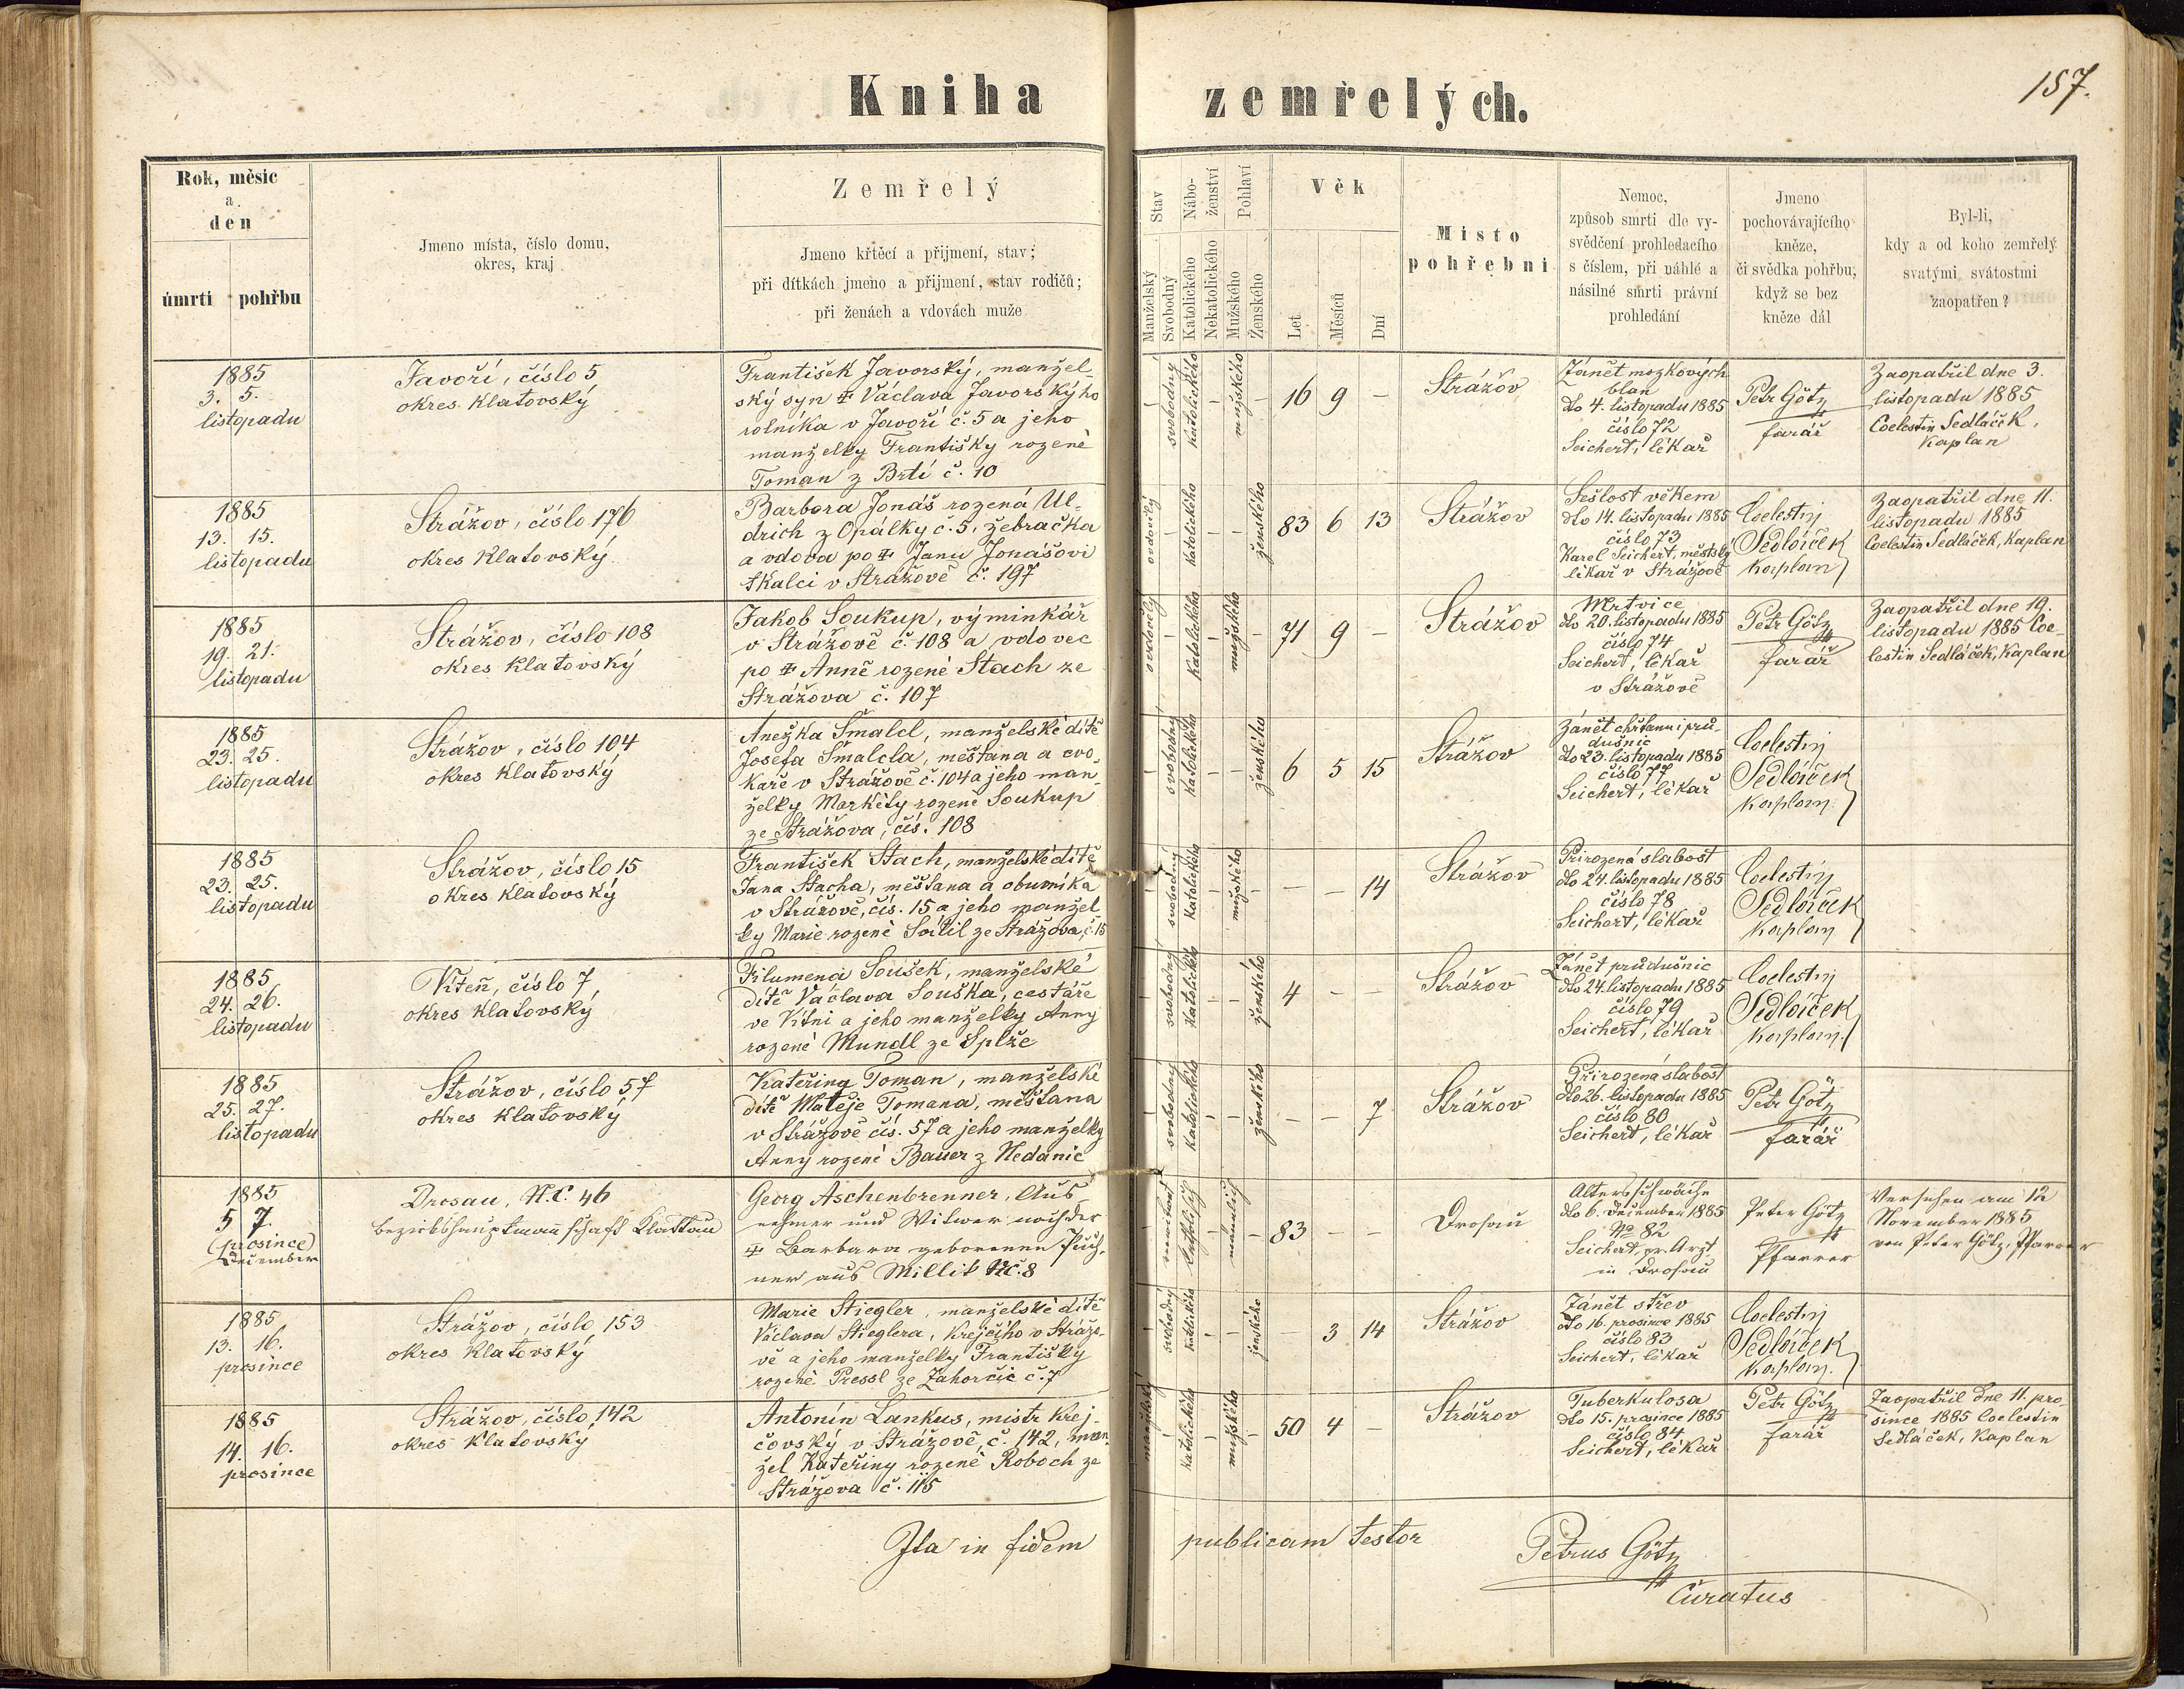 157.
Kniha zemřelých.
Rok, měsíc
a
den
úmrtí
pohřbu
Jmeno místa, číslo domu,
okres, kraj
Zemřelý
Jmeno křtěcí a přijmení, stav;
při dítkách jmeno a přijmení, stav rodičů;
při ženách a vdovách muže
Stav
Manželský
Svobodný
Nábo-
ženství
Katolického
Nekatolického
Pohlaví
Mužského
Ženského
Věk
Let
Měsíců
Dní
Místo
pohřební
Nemoc,
způsob smrti dle vy-
svědčení prohledacího
s číslem, při náhlé a
násilné smrti právní
prohledání
Jmeno
pochovávajícího
kněze,
či svědka pohřbu,
když se bez
kněze dál
Byl-li,
kdy a od koho zemřelý
svatými svátostmi
zaopatřen?
1885
3. 5.
listopadu
Javoří, číslo 5
okres Klatovský
František Javorský, manžel-
ský syn ‡ Václava Javorskýho
rolníka v Javoří č. 5 a jeho
manželky Františky rozené
Toman z Brtí č. 10
- svobodný katolického - mužského -
16 9 -
Strážov
Zánět mozkových
blan
dto 4. listopadu 1885
číslo 72
Seichert, lékař
Petr Götz
farář
Zaopatřil dne 3.
listopadu 1885
Coelestin Sedláček,
Kaplan
1885
13. 15.
listopadu
Strážov, číslo 176
okres Klatovský
Barbora Jonáš rozená Ul-
drich z Opálky č. 5, žebračka
a vdova po ‡ Janu Jonášovi
tkalci v Strážově č. 197
ovdovělý - katolického - - ženského
83 6 13
Strážov
Sešlost věkem
dto 14. listopadu 1885
číslo 73
Karel Seichert, městský
lékař v Strážově
Coelestin
Sedláček
Kaplan
Zaopatřil dne 11.
listopadu 1885
Coelestin Sedláček, Kaplan
1885
19. 21.
listopadu
Strážov, číslo 108
okres Klatovský
Jakob Soukup, výminkář
v Strážově č. 108 a vdovec
po ‡ Anně rozené Stach ze
Strážova č. 107
ovdovělý - katolického - mužského -
71 9 -
Strážov
Mrtvice
dto 20. listopadu 1885
číslo 74
Seichert, lékař
v Strážově
Petr Götz
farář
Zaopatřil dne 19.
listopadu 1885 Coe-
lestin Sedláček, Kaplan
1885
23. 25.
listopadu
Strážov, číslo 104
okres Klatovský
Anežka Šmalcl, manželské dítě
Josefa Šmalcla, měšťana a cvo-
kaře v Strážově č. 104 a jeho man-
želky Markéty rozené Soukup
ze Strážova, čís. 108
- svobodný katolického - - ženského
6 5 15
Strážov
Zánět chřtanu i prů-
dušnic
dto 23. listopadu 1885
číslo 77
Seichert, lékař
Coelestin
Sedláček
Kaplan
1885
23. 25.
listopadu
Strážov, číslo 15
okres Klatovský
František Stach, manželské dítě
Jana Stacha, měšťana a obuvníka
v Strážově, čís. 15 a jeho manžel
ky Marie rozené ze Strážova, č. 15
- svobodný katolického - mužského -
- - 14
Strážov
Přirozená slabost
dto 24. listopadu 1885
číslo 78
Seichert, lékař
Coelestin
Sedláček
Kaplan
1885
24. 26.
listopadu
Víteň, číslo 7,
okres Klatovský
Filumena Soušek, manželské
dítě Václava Souška, cestáře
ve Vítni a jeho manželky Anny
rozené Mundl ze Splže
- svobodný katolického - - ženského
4 - -
Strážov
Zánět průdušnic
dto 24. listopadu 1885
číslo 79
Seichert, lékař
Coelestin
Sedláček
Kaplan
1885
25. 27.
listopadu
Strážov, číslo 57
okres Klatovský
Kateřina Toman, manželské
dítě Matěje Tomana, měšťana
v Strážově čís. 57 a jeho manželky
Anny rozené Bauer z Hedanic
- svobodný katolického - - ženského
- - 7
Strážov
Přirozená slabost
dto 26. listopadu 1885
číslo 80
Seichert, lékař
Petr Götz
farář
1885
5 7.
(prosince)
December
Drosau, N.C. 46
Bezirkshauptmannschaft Klattau
Georg Aschenbrenner, Aus-
nehmer und Witwer nach der
‡ Barbara geborenen
ner aus Millik NC. 8
verwitwet katholisch - männlich -
83 - -
Drosau
Altersschwäche
dto 6. December 1885
No 82
Seichert, pr. Arzt
in Drosau
Peter Götz
Pfarrer
Versehen am 12
November 1885
von Peter Götz, Pfarrer
1885
13. 16.
prosince
Strážov, číslo 153
okres Klatovský
Marie Stiegler, manželské dítě
Václava Stieglera, krejčího v Strážo-
vě a jeho manželky Františky
rozené Pressl ze Zahorčic č. 7
- svobodný katolického - - ženského
- 3 14
Strážov
Zánět střev
dto 16. prosince 1885
číslo 83
Seichert, lékař
Coelestin
Sedláček
Kaplan.
1885
14. 16.
prosince
Strážov, číslo 142
okres Klatovský
Antonín Lankus, mistr krej-
čovský v Strážově, č. 142, man-
žel Kateřiny rozené Roboch ze
Strážova č. 115
manželský - katolického - mužského -
50 4 -
Strážov
Tuberkulosa
dto 15. prosince 1885
číslo 84
Seichert, lékař
Petr Götz
farář
Zaopatřil dne 11. pro-
since 1885 Coelestin
Sedláček, Kaplan
Ita in fidem publicam testor
Petrus Götz
Curatus